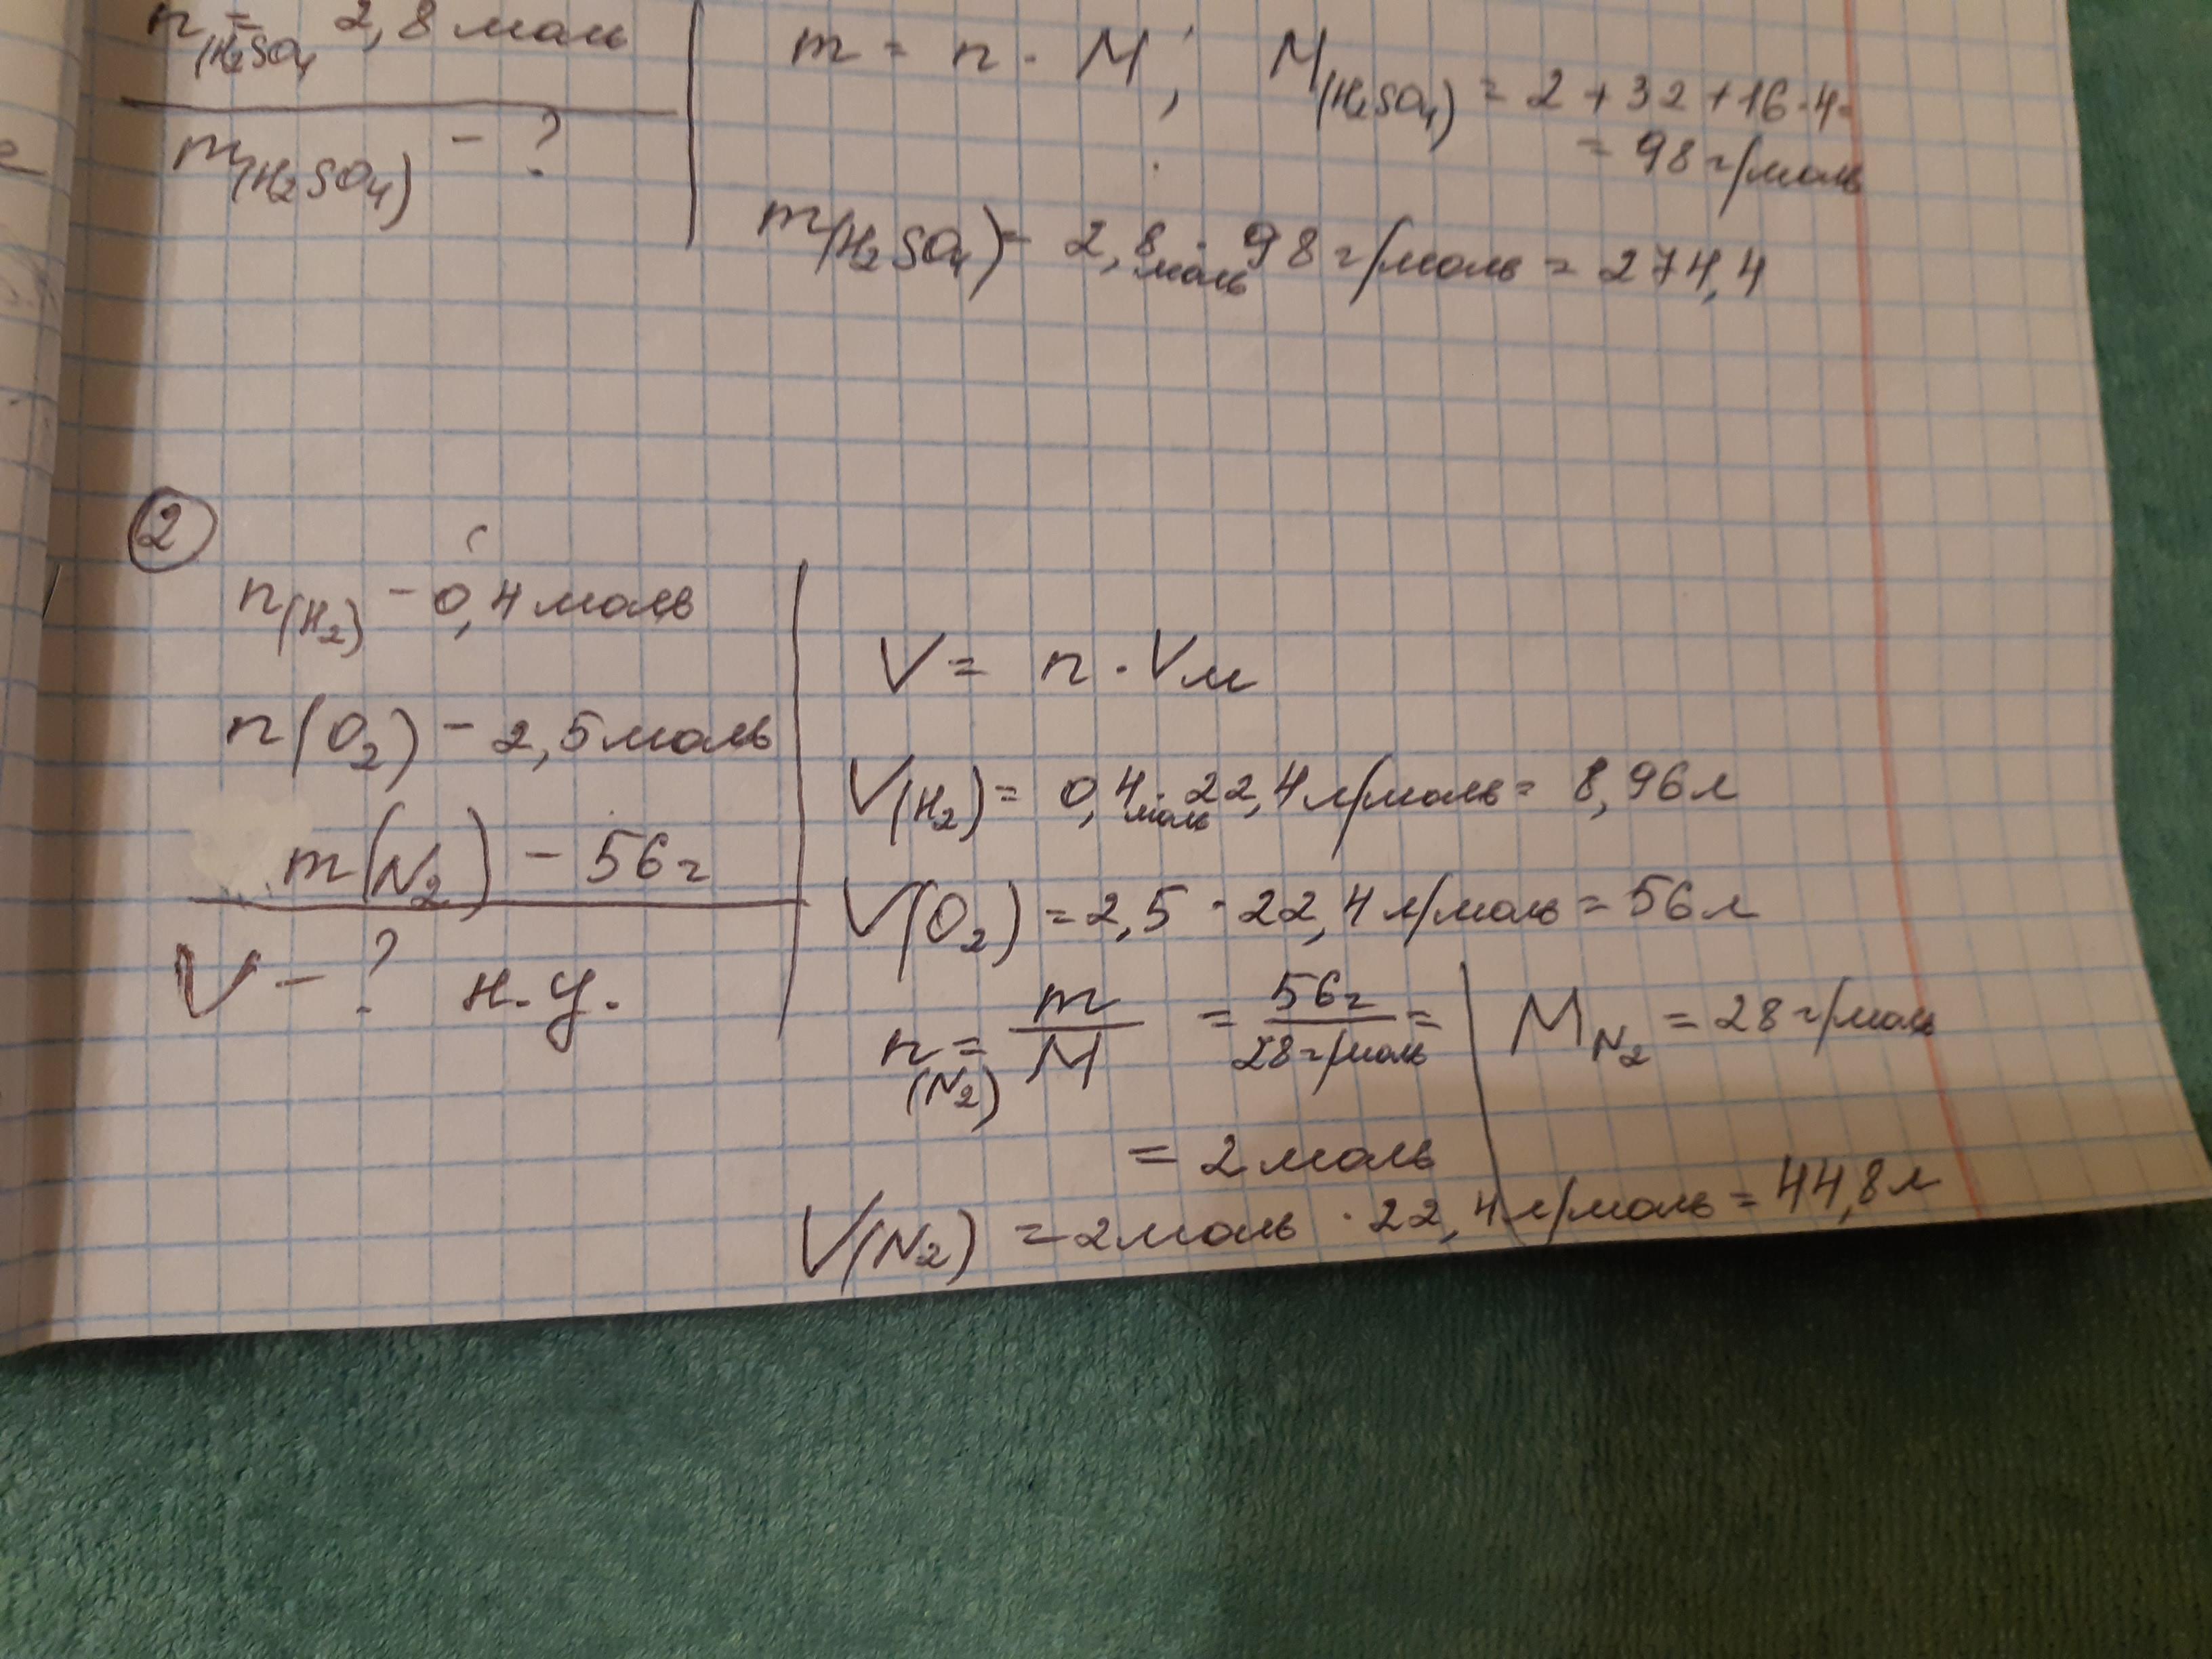 n(H₂SO₄ = 2,8 моль
m(H₂SO₄) - ?
m = n · M; M(H₂SO₄) = 2 + 32 + 16 · 4 =
= 98 г/моль
m(H₂SO₄) = 2,8 моль · 98 г/моль = 274,4
2
n(H₂) - 0,4 моль
n(O₂) - 2,5 моль
m(N₂) - 56 г
V - ? н.у.
V = n · Vм
V(H₂) = 0,4 моль · 22,4 л/моль = 8,96 л
V(O₂) = 2,5 · 22,4 л/моль = 56 л
n(N₂) = m/M = 56 г/28 г/моль = | M N₂ = 28 г/моль
= 2 моль
V(N₂) = 2 моль · 22,4 л/моль = 44,8 л